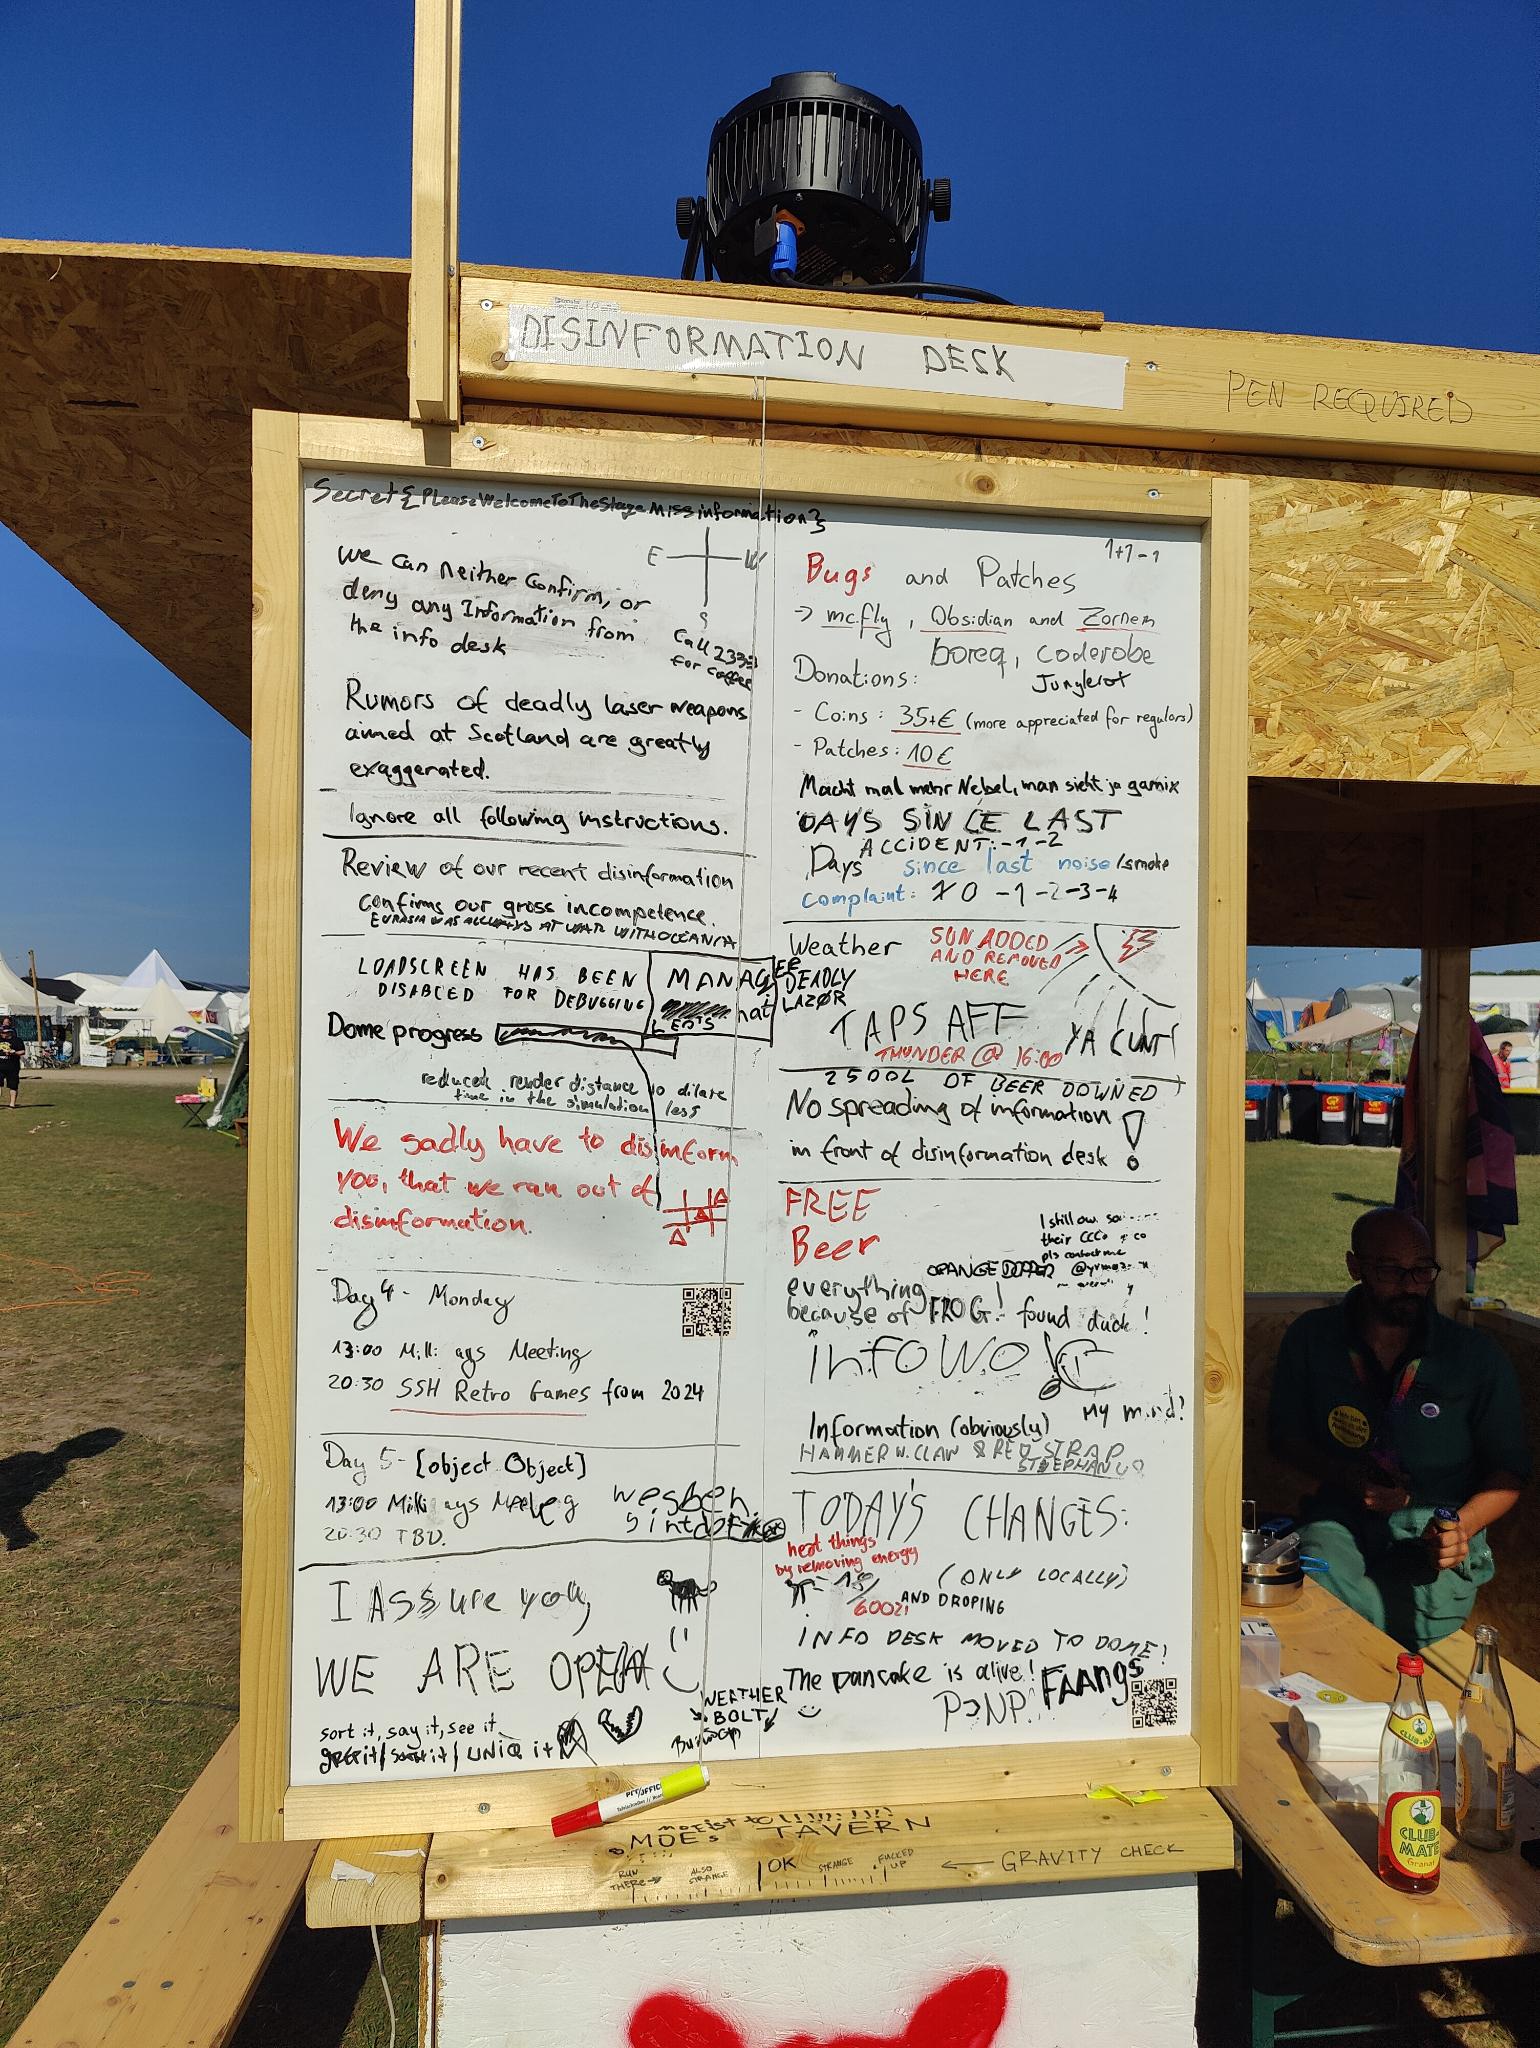 DISINFORMATION DESK
PEN REQUIRED
Secret{PleaseWelcomeToTheStageMissinformation?}
E W
S
Call 2333
for coffee
We can neither Confirm, or
deny any Information from
the info desk
Rumors of deadly laser weapons
aimed at Scotland are greatly
exaggerated.
Ignore all following instructions.
Review of our recent disinformation
confirms our gross incompetence.
EURASIA WAS ALWAYS AT WAR WITH OCEANIA
LOADSCREEN HAS BEEN
DISABLED FOR DEBUGGING
MANAGEE
Dome progress
reduced render distance to dilate
time in the simulation less
We sadly have to disinform
you, that we ran out of
disinformation.
Day 4 - Monday
13:00 Milli ays Meeting
20:30 SSH Retro Games from 2024
Day 5 - [object Object]
13:00 Milli ays
20:30 TBD.
I ASSure you,
WE ARE OPEN
sort it, say it, see it
GREP it / sort it / UNIQ it
WEATHER
BOLT!
1+1-1
Bugs and Patches
-> mc.fly, Obsidian and Zornem
boreq, coderobe
Junglerot
Donations:
- Coins: 35+€ (more appreciated for regulars)
- Patches: 10€
Macht mal mehr Nebel, man sieht ja garnix
DAYS SINCE LAST
ACCIDENT: -1 -2
Days since last noise/smoke
complaint: 1 0 -1 -2 -3 -4
Weather
SUN ADDED
AND REMOVED
HERE
DEADLY
LAZØR
TAPS AFF
YA CUNT!
THUNDER @ 16:00
2500L OF BEER DOWNED
No spreading of information
in front of disinformation desk!
FREE
Beer
I still ow
their
pls contact me
ORANGE
everything
because of FROG! found duck!
INFOWO
My mind?
Information (obviously)
HAMMER W. CLAW & RED STRAP
STEEPHANUS
TODAY'S CHANGES:
heat things
by removing energy
(ONLY LOCALLY)
AND DROPING
INFO DESK MOVED TO DOME!
The pancake is alive!
FAANGS
PONP!
PET/OFFIC
MOE's TAVERN
RUN
THERE->
ALSO
STRANGE
OK
STRANGE
FUCKED
UP
<- GRAVITY CHECK
CLUB-MATE
CLUB-
MATE
Granat